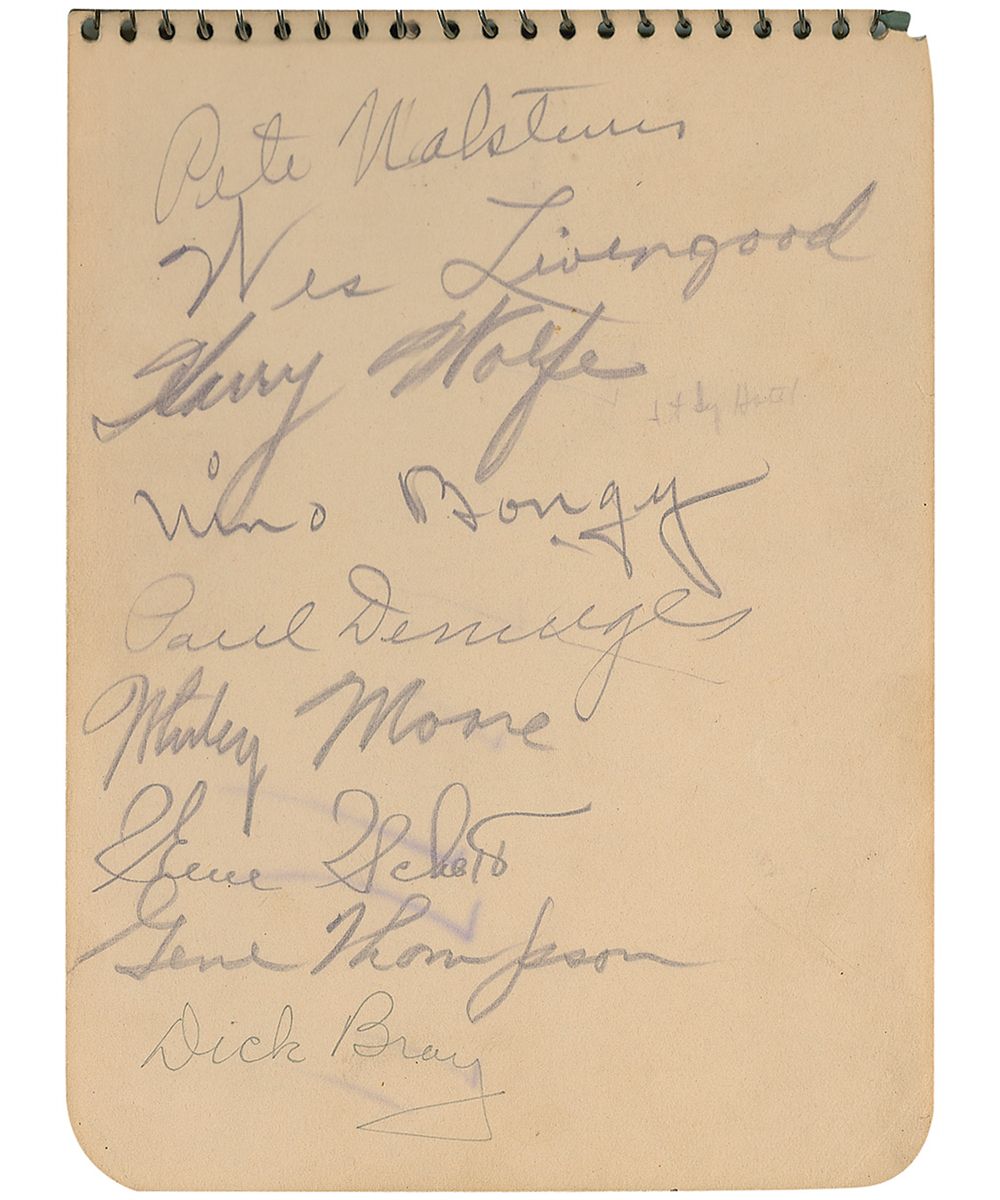 Pete Nalsturis
Wes Livengood
Harry Wolfe
Nino Bongy
Paul
Whitey Moore
Gene
Gene Thompson
Dick Bray